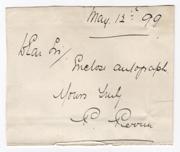 May. 12th 99
Dear Sir/
Enclose autograph
Yours truly